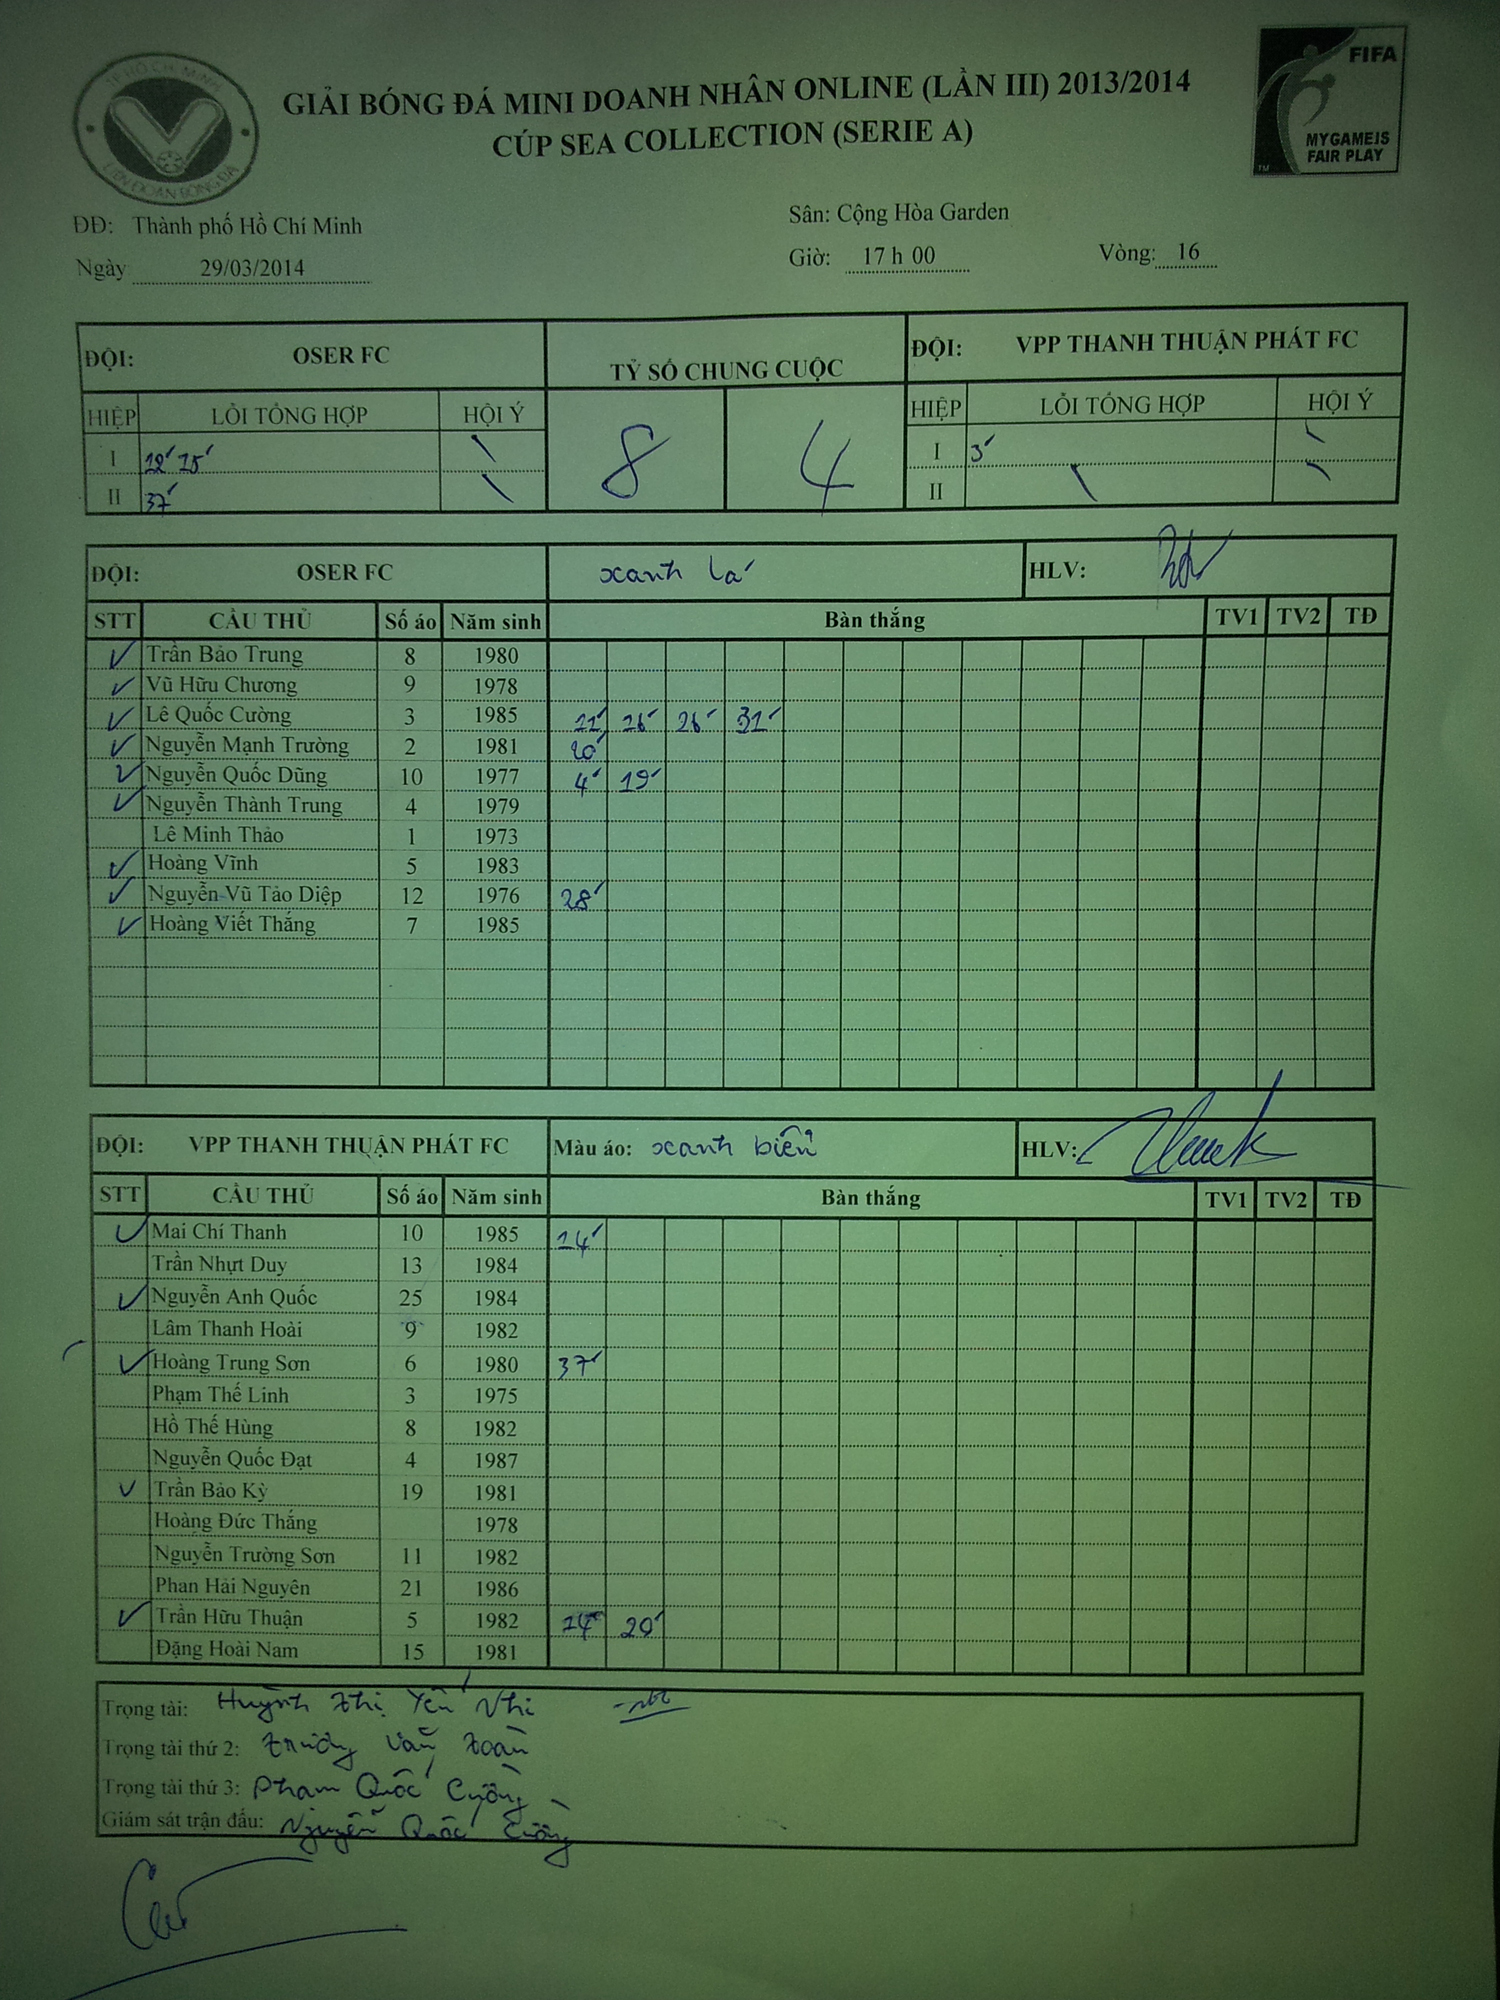 TP HỒ CHÍ MINH
LIÊN ĐOÀN BÓNG ĐÁ
FIFA
MY GAME IS
FAIR PLAY
TM
GIẢI BÓNG ĐÁ MINI DOANH NHÂN ONLINE (LẦN III) 2013/2014
CÚP SEA COLLECTION (SERIE A)
ĐĐ: Thành phố Hồ Chí Minh Sân: Cộng Hòa Garden
Ngày 29/03/2014 Giờ: 17 h 00 Vòng: 16
ĐỘI: OSER FC TỶ SỐ CHUNG CUỘC ĐỘI: VPP THANH THUẬN PHÁT FC
HIỆP LỖI TỔNG HỢP HỘI Ý 8 4 HIỆP LỖI TỔNG HỢP HỘI Ý
I 12' 15' I 3'
II 37' II
ĐỘI: OSER FC xanh lá HLV:
STT CẦU THỦ Số áo Năm sinh Bàn thắng TV1 TV2 TĐ
Trần Bảo Trung 8 1980
Vũ Hữu Chương 9 1978
Lê Quốc Cường 3 1985 26' 31'
Nguyễn Mạnh Trường 2 1981 20'
Nguyễn Quốc Dũng 10 1977 4' 19'
Nguyễn Thành Trung 4 1979
Lê Minh Thảo 1 1973
Hoàng Vĩnh 5 1983
Nguyễn Vũ Tảo Diệp 12 1976 28'
Hoàng Viết Thắng 7 1985
ĐỘI: VPP THANH THUẬN PHÁT FC Màu áo: xanh biển HLV:
STT CẦU THỦ Số áo Năm sinh Bàn thắng TV1 TV2 TĐ
Mai Chí Thanh 10 1985 14'
Trần Nhựt Duy 13 1984
Nguyễn Anh Quốc 25 1984
Lâm Thanh Hoài 9 1982
Hoàng Trung Sơn 6 1980 37'
Phạm Thế Linh 3 1975
Hồ Thế Hùng 8 1982
Nguyễn Quốc Đạt 4 1987
Trần Bảo Kỳ 19 1981
Hoàng Đức Thắng 1978
Nguyễn Trường Sơn 11 1982
Phan Hải Nguyên 21 1986
Trần Hữu Thuận 5 1982
Đặng Hoài Nam 15 1981
Trọng tài: Huỳnh Thị Yến Nhi
Trọng tài thứ 2: Trương Văn Toàn
Trọng tài thứ 3: Phạm Quốc Cường
Giám sát trận đấu: Nguyễn Quốc Cường